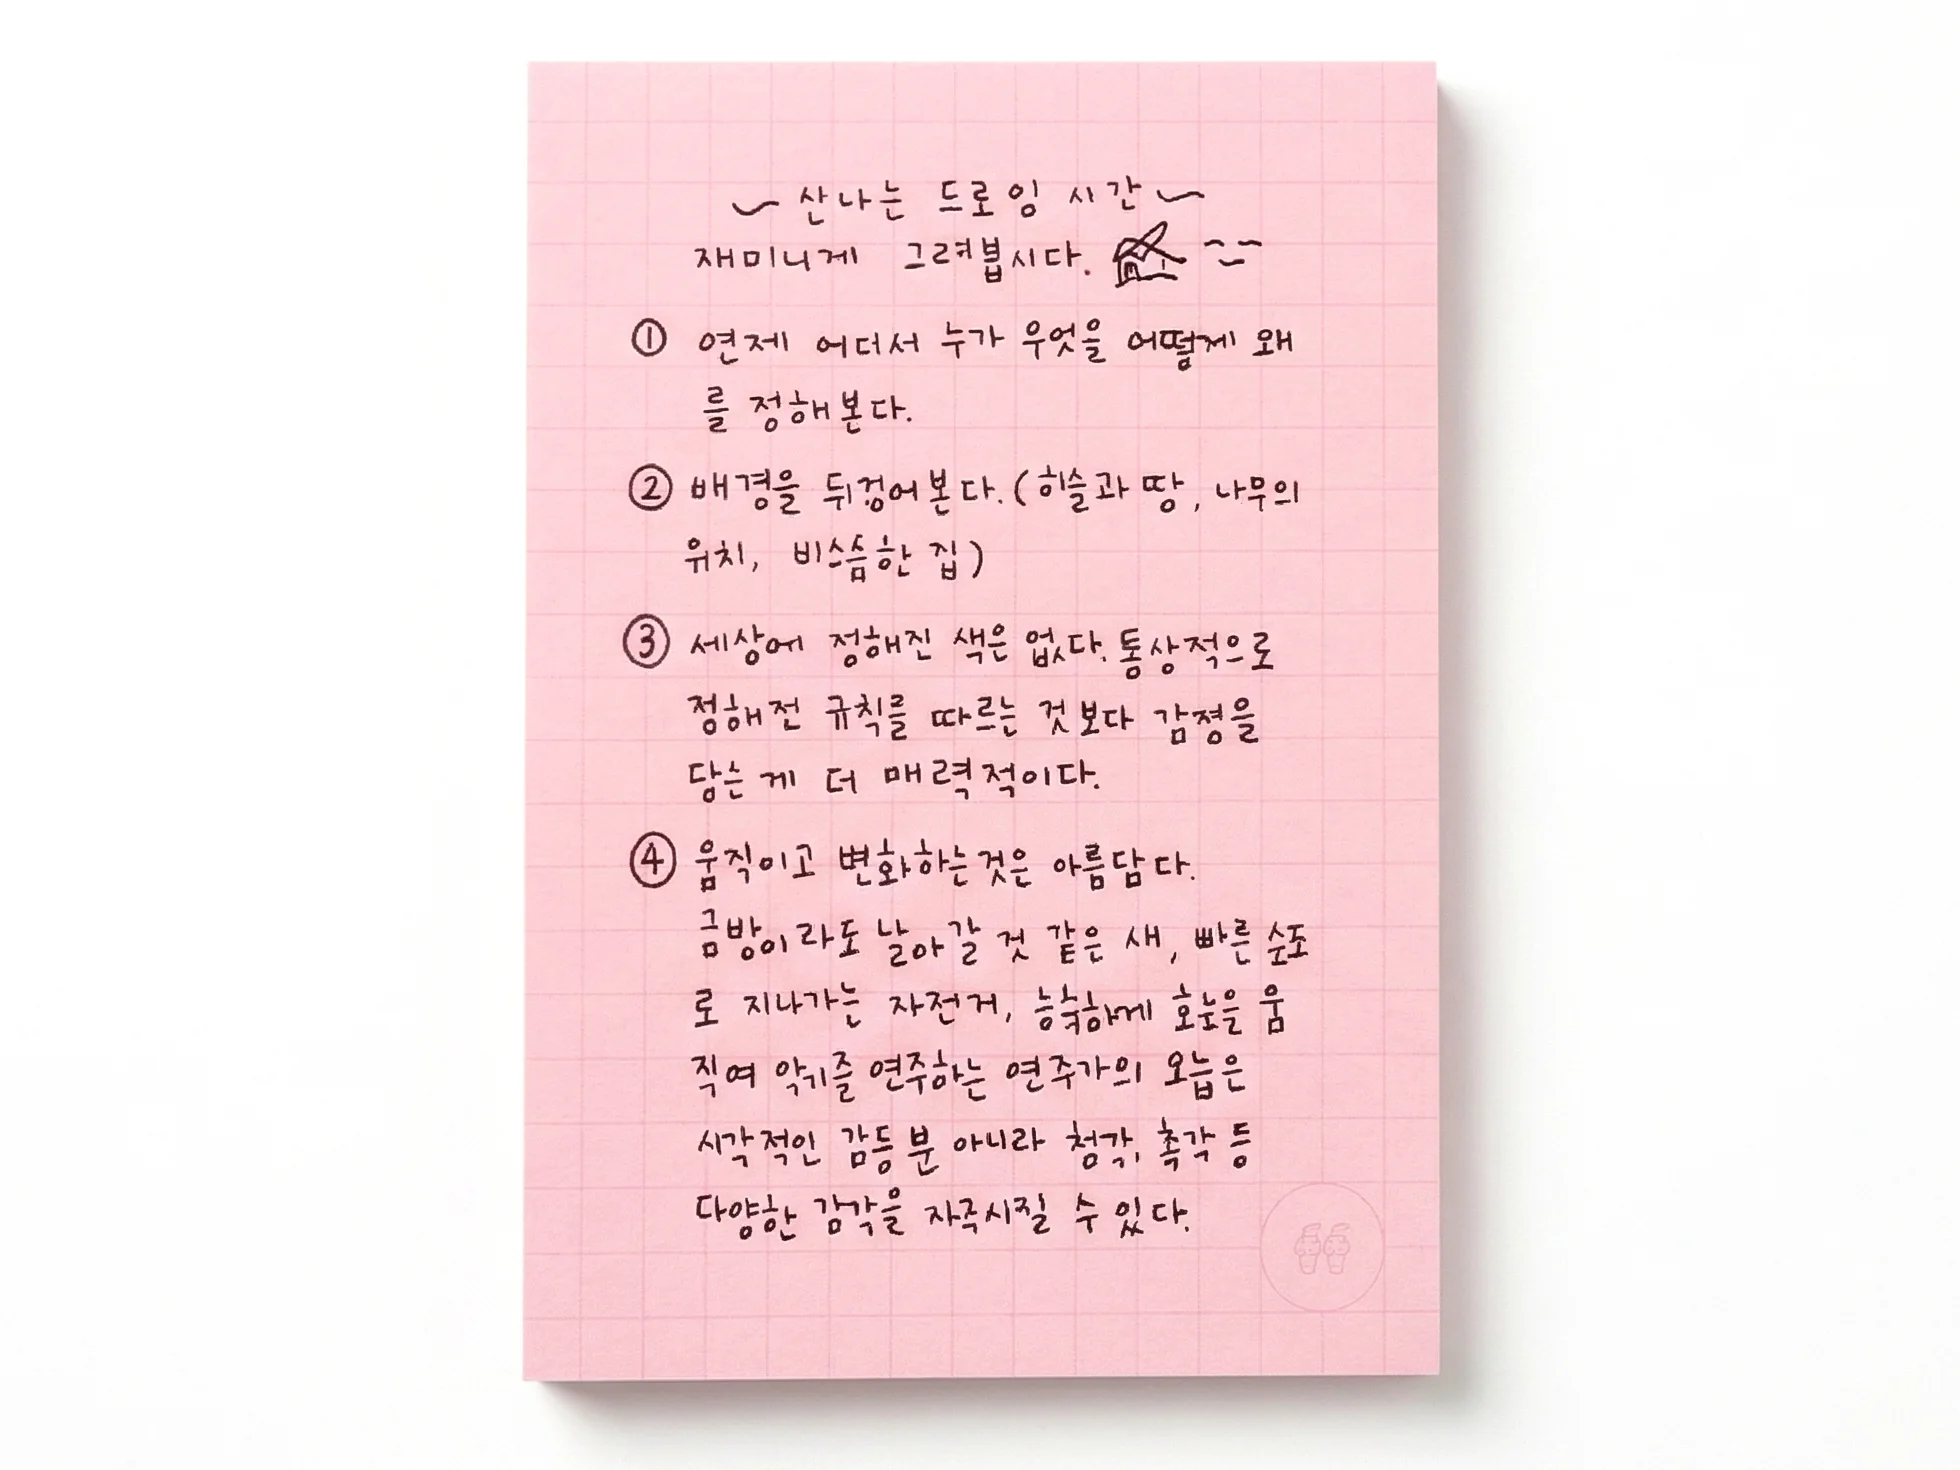 ~ 산나는 드로잉 시간 ~
재미니게 그려봅시다.
① 연제 어디서 누가 우엇을 어떻게 왜
를 정해본다.
② 배경을 뒤겅어본다. (히슬과 땅, 나무의
위치, 비스슴한 집)
③ 세상에 정해진 색은 없다. 통상적으로
정해전 규칙를 따르는 것보다 감정을
담는 게 더 매력적이다.
④ 움직이고 변화하는것은 아름답다.
금방이라도 날아갈 것 같은 새, 빠른 속도
로 지나가는 자전거, 움
직여 악기즐 연주하는 연주가의 오늡은
시각적인 감등분 아니라 청각, 촉각 등
다양한 감각을 자죽시질 수 있다.